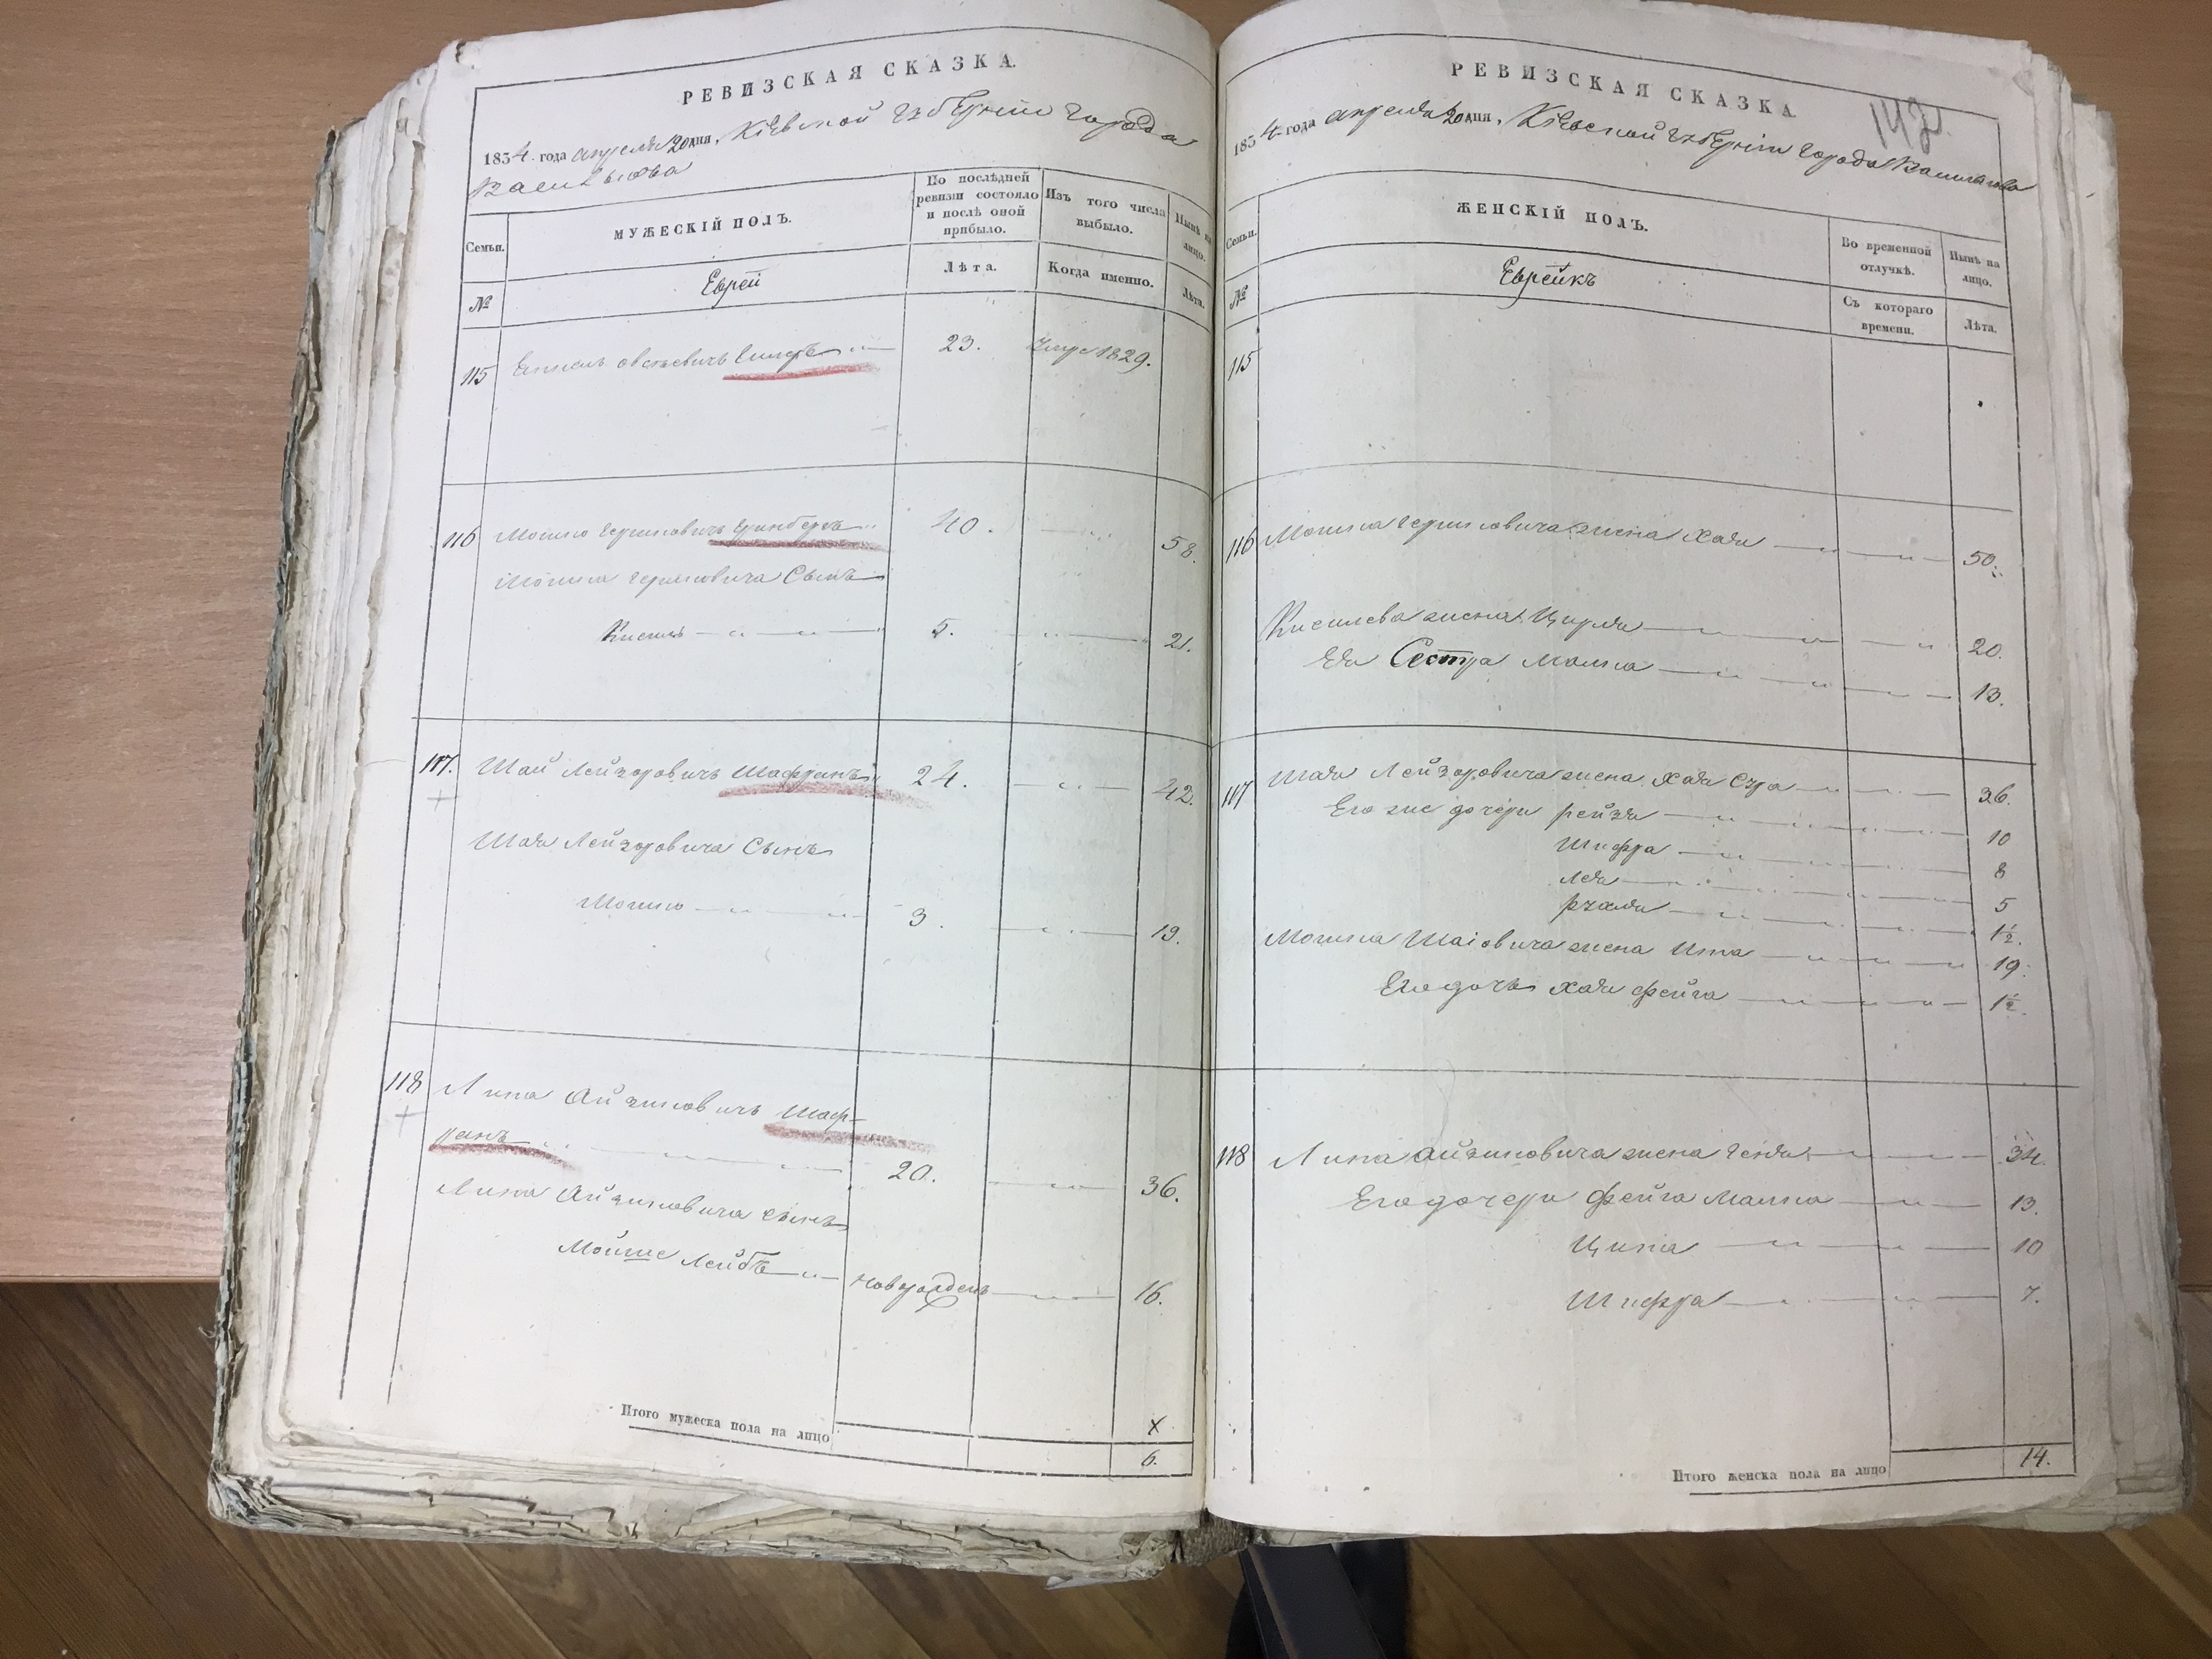 РЕВИЗСКАЯ СКАЗКА.
1834. года апреля 20 дня, Кіевской губерніи города
Василькова
Семьи.
МУЖЕСКІЙ ПОЛЪ.
По последней
ревизіи состояло
и послѣ оной
прибыло.
Изъ того числа
выбыло.
Нынѣ на
лицо.
№
Еврей
Лѣта.
Когда именно.
Лѣта.
115 23. 1829.
116 Мошко Гершковичъ Гринбергъ 40. 58.
Мошка Гершковича Сынъ
Кисиль 5. 21.
117. Шая Лейзоровичъ Шафранъ 24. 42.
Шая Лейзоровича Сынъ
Мошко 3. 19.
118 Липа Айзиковичъ Шаф-
ранъ 20. 36.
Липа Айзиковича сынъ
Мойше Лейбъ новорожденъ 16.
Итого мужеска пола на лицо
х
6.
РЕВИЗСКАЯ СКАЗКА.
142
1834 года апреля 20 дня, Кіевской губерніи города Василькова
Семьи.
ЖЕНСКІЙ ПОЛЪ.
Во временной
отлучкѣ.
Нынѣ на
лицо.
№
Еврейкъ
Съ котораго
времени.
Лѣта.
115
116 Мошка Гершковича жена Хая 50.
Кисилева жена Цирля 20.
Ея Сестра Малка 13.
117 Шая Лейзоровича жена Хая Сура 36.
Его же дочери Рейзя 10
Шифра 8
Лея 5
Рухля 1½.
Мошка Шаіовича жена Ита 19.
Его дочь Хая Фейга 1½.
118 Липа Айзиковича жена Геня 34.
Его дочери Фейга Малка 13.
Ципа 10
Шифра 7.
Итого женска пола на лицо 14.